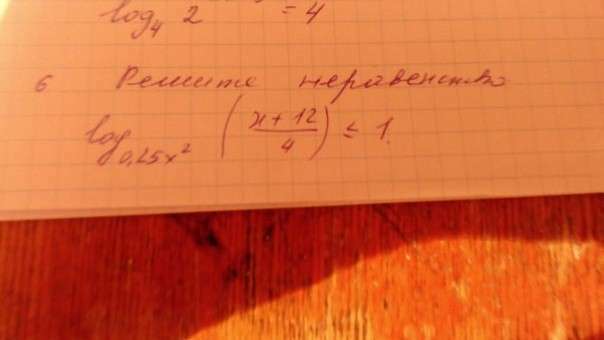 log₄ 2 = 4
6 Решите неравенство
log₀,₂₅ₓ² (x + 12 / 4) ≤ 1.